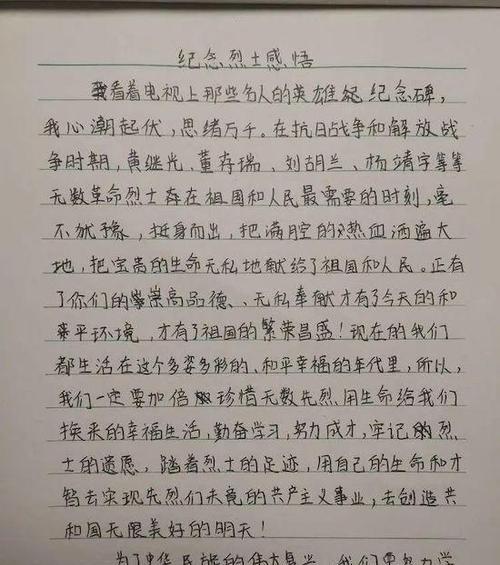 纪念烈士感悟
我看着电视上那些名人的英雄纪念碑,
我心潮起伏,思绪万千。在抗日战争和解放战
争时期,黄继光、董存瑞、刘胡兰、杨靖宇等等
无数革命烈士存在祖国和人民最需要的时刻,毫
不犹豫,挺身而出,把满腔的热血洒遍大
地,把宝贵的生命无私地献给了祖国和人民。正有
了你们的崇高品德、无私奉献才有了今天的和
平环境,才有了祖国的繁荣昌盛!现在的我们
都生活在这个多姿多彩的、和平幸福的年代里,所以,
我们一定要加倍珍惜无数先烈用生命给我们
换来的幸福生活,勤奋学习,努力成才,牢记烈
士的遗愿,踏着烈士的足迹,用自己的生命和才
智去实现先烈们未竟的共产主义事业,去创造共
和国无限美好的明天!
为了中华民族的伟大复兴,我们要努力学